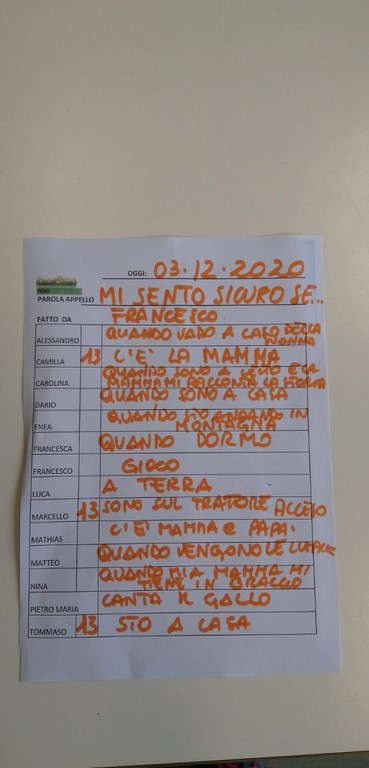 OGGI: 03.12.2020
PAROLA APPELLO MI SENTO SICURO SE...
FATTO DA FRANCESCO
ALESSANDRO QUANDO VADO A CASA DELLA NONNA
CAMILLA 13 C'È LA MAMMA
CAROLINA QUANDO SONO A LETTO E LA MAMMA MI RACCONTA LA STORIA
DARIO QUANDO SONO A CASA
ENEA QUANDO STO ANDANDO IN MONTAGNA
FRANCESCA QUANDO DORMO
FRANCESCO GIOCO
LUCA A TERRA
MARCELLO 13 SONO SUL TRATTORE ACCESO
MATHIAS C'È MAMMA E PAPÀ
MATTEO QUANDO VENGONO LE LUMACHE
NINA QUANDO MIA MAMMA MI TIENE IN BRACCIO
PIETRO MARIA CANTA IL GALLO
TOMMASO 13 STO A CASA